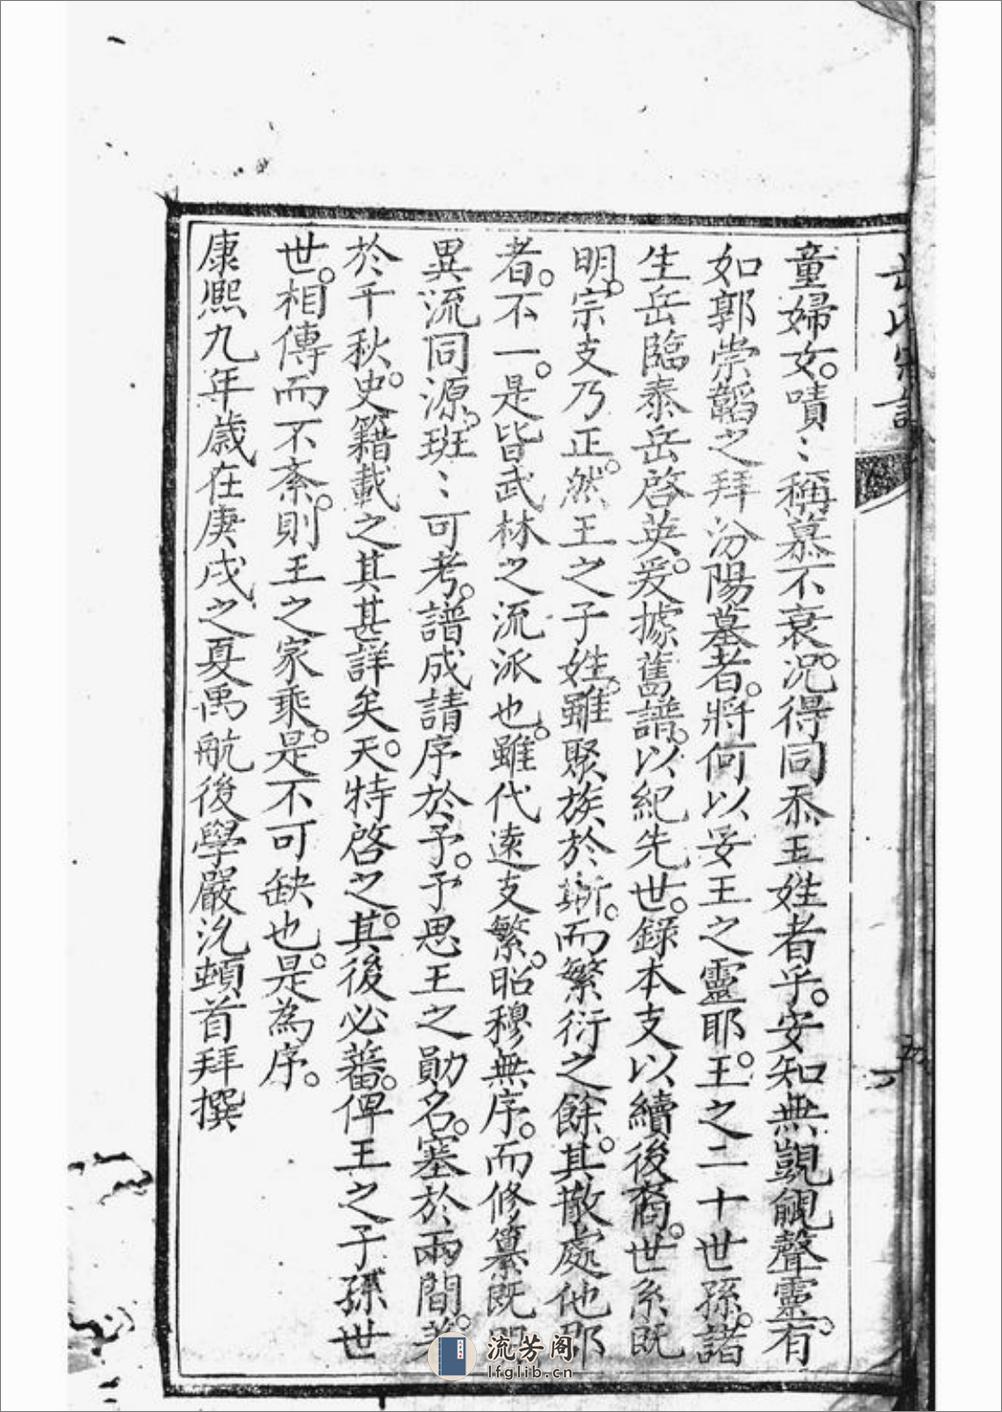 岳氏宗譜
童婦女。嘖〻稱慕不衰。況得同忝王姓者乎。安知無覬覦聲靈。有
如郭崇韜之拜汾陽墓者。將何以妥王之靈耶。王之二十世孫。諸
生岳臨泰岳啓英。爰據舊譜。以紀先世。錄本支以續後裔。世系既
明。宗支乃正。然王之子姓。雖聚族於斯。而繁衍之餘。其散處他郡
者。不一。是皆武林之流派也。雖代遠支繁。昭穆無序。而修纂既
異流同源。班〻可考。譜成請序於予。予思王之勛名。塞於兩間。著
於千秋。史籍載之其甚詳矣。天特啓之。其後必蕃。俾王之子孫世
世。相傳而不紊。則王之家乘。是不可缺也。是為序。
康熙九年歲在庚戌之夏禹航後學嚴沆頓首拜撰
流芳阁
lfglib.cn